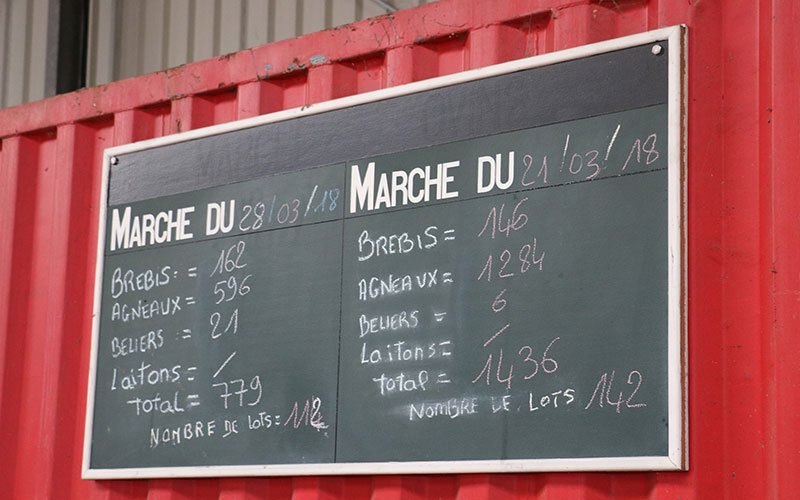 MARCHE DU 28/03/18
BREBIS: = 162
AGNEAUX = 596
BELIERS := 21
Laitons = /
total = 779
NOMBRE DE LOTS =
MARCHE DU 21/03/18
BREBIS = 146
AGNEAUX = 1284
BELIERS = 6
Laitons = /
total = 1436
NOMBRE DE LOTS 142